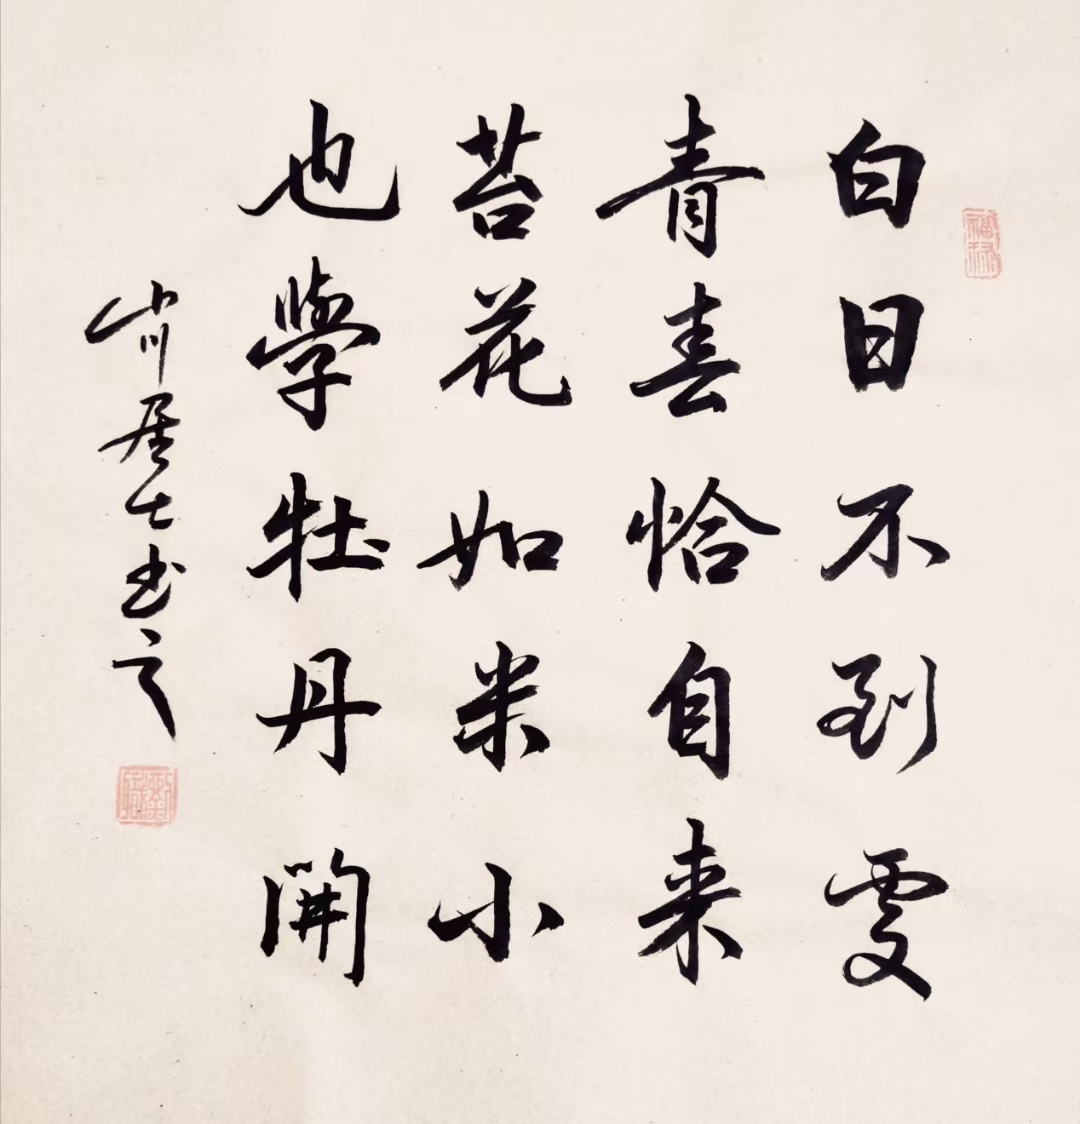 白日不到處
青春恰自来
苔花如米小
也學牡丹開
川居士书之